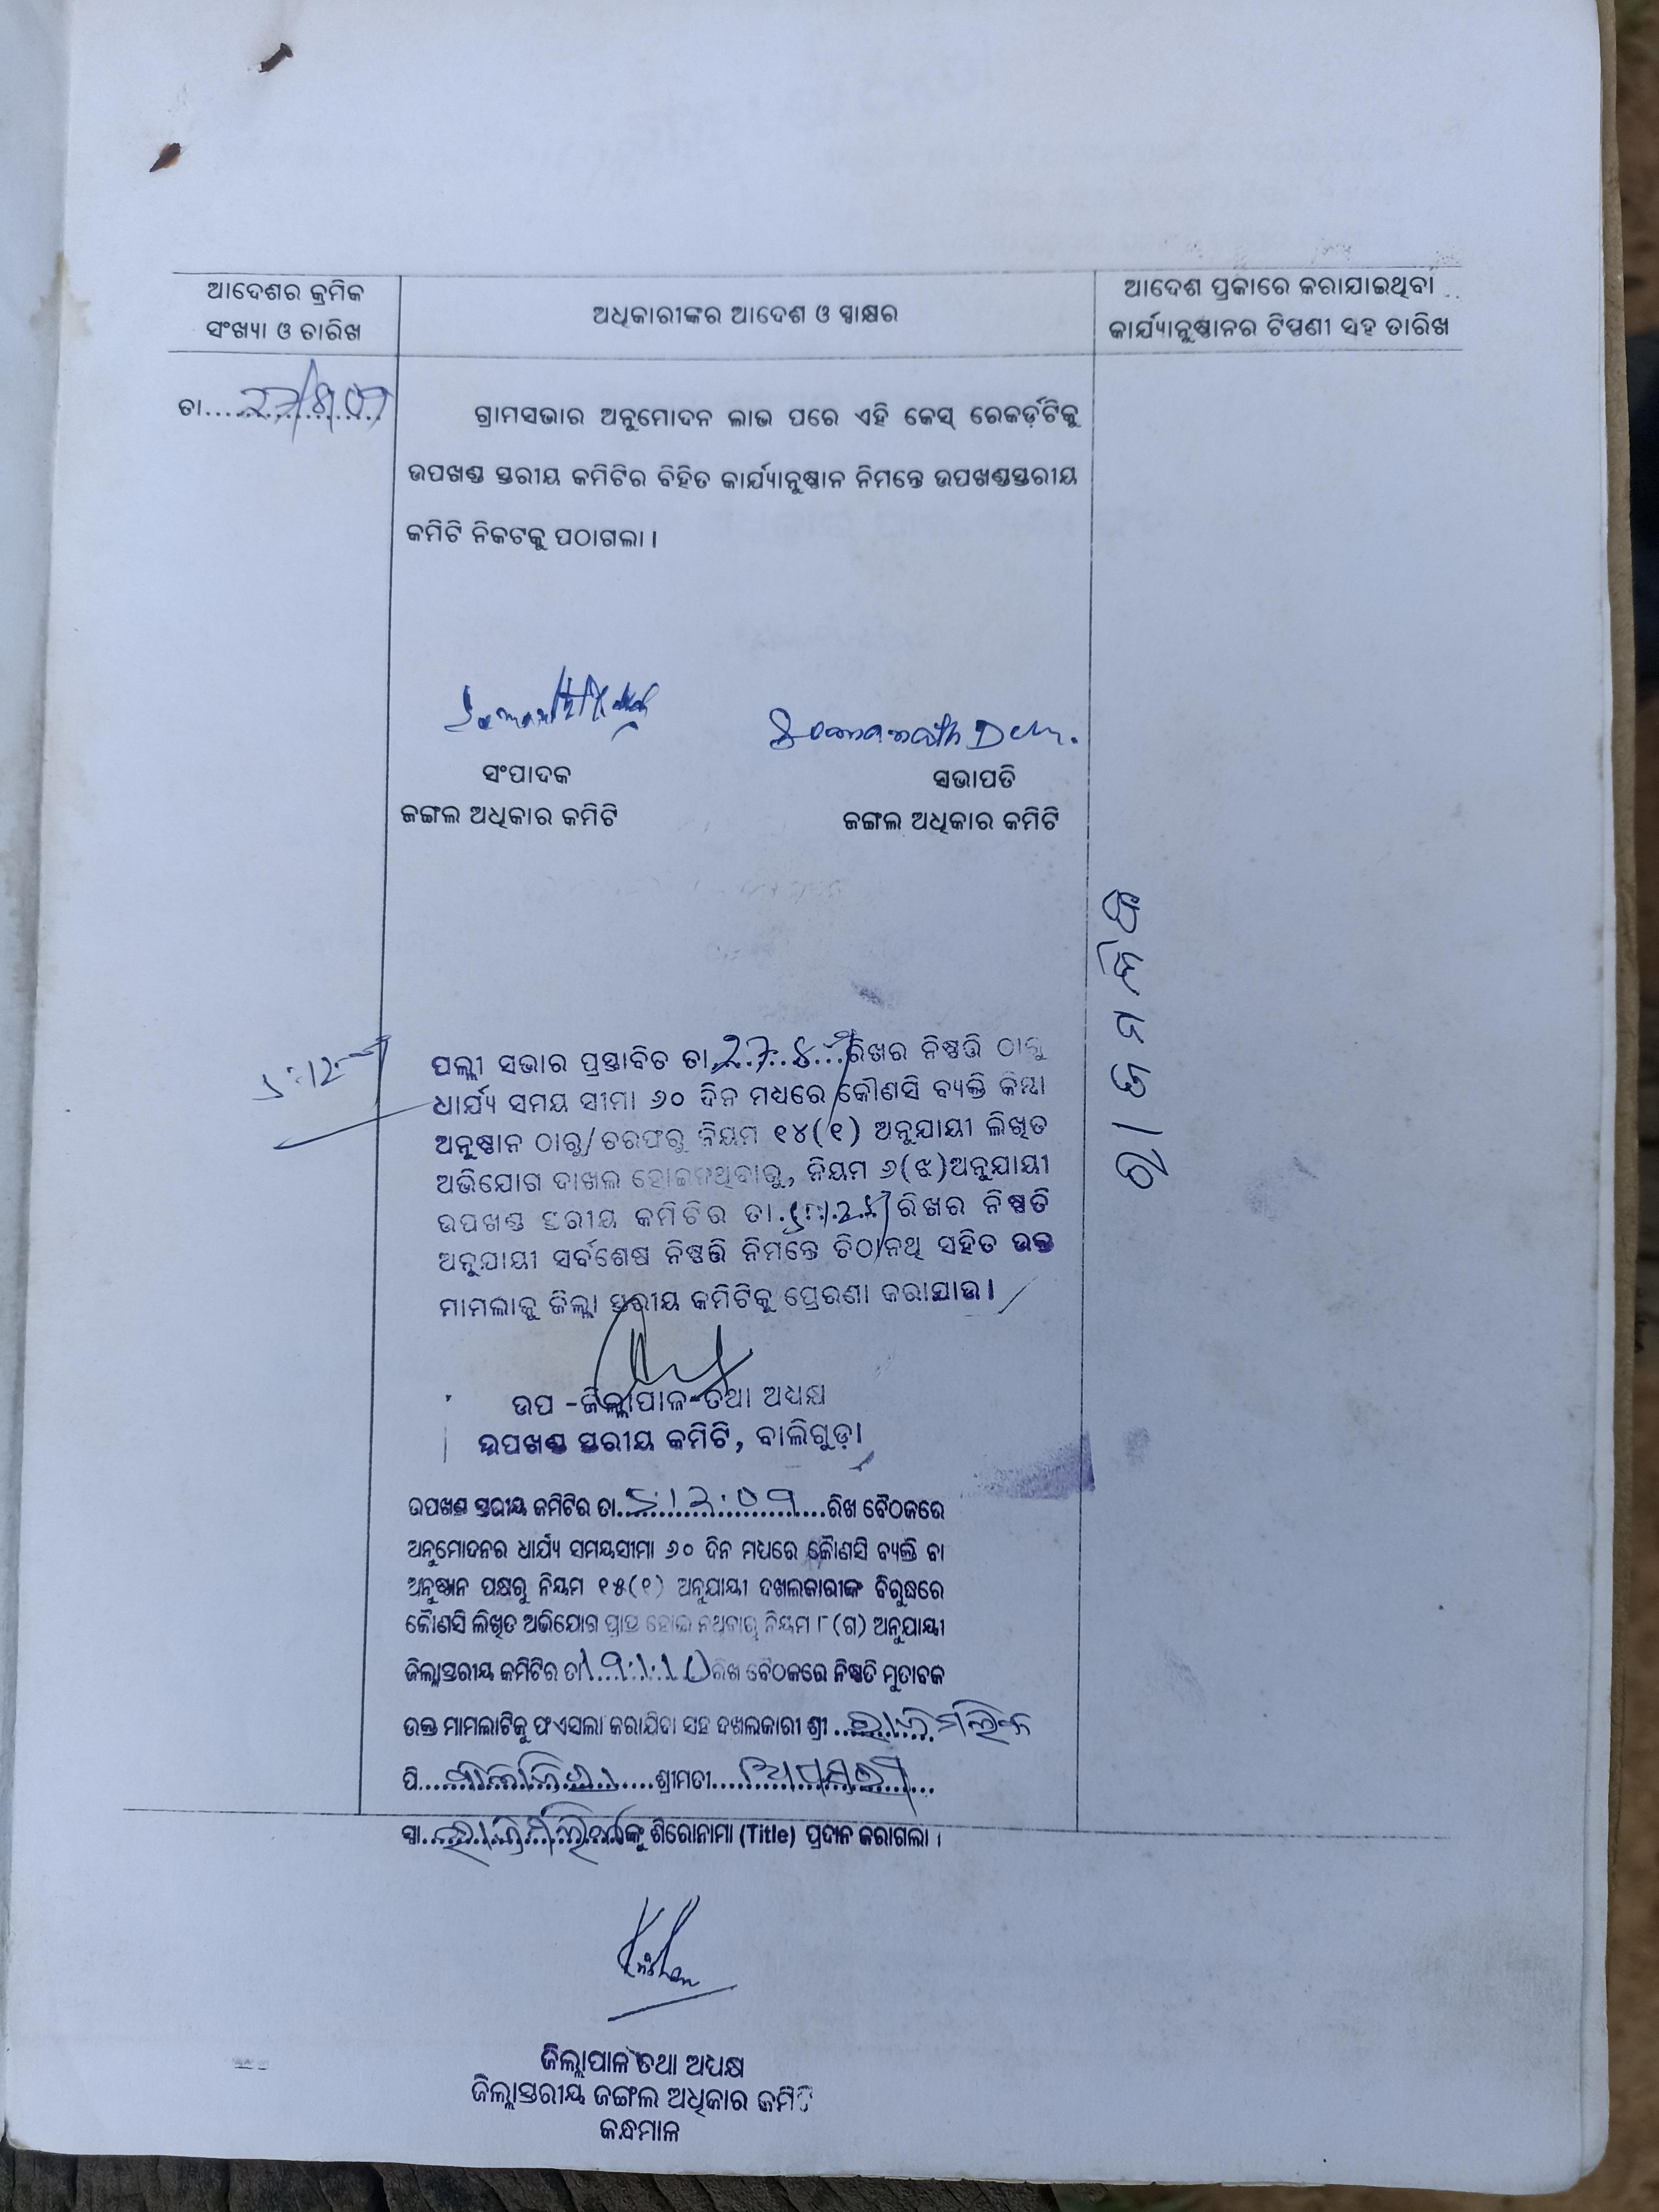 ଆଦେଶର କ୍ରମିକ
ସଂଖ୍ୟା ଓ ତାରିଖ
ଅଧିକାରୀଙ୍କର ଆଦେଶ ଓ ସ୍ୱାକ୍ଷର
ଆଦେଶ ପ୍ରକାରେ କରାଯାଇଥିବା
କାର୍ଯ୍ୟାନୁଷ୍ଠାନର ଟିପ୍ପଣୀ ସହ ତାରିଖ
ତା....
ଗ୍ରାମସଭାର ଅନୁମୋଦନ ଲାଭ ପରେ ଏହି କେସ୍ ରେକର୍ଡ଼ଟିକୁ
ଉପଖଣ୍ଡ ସ୍ତରୀୟ କମିଟିର ବିହିତ କାର୍ଯ୍ୟାନୁଷ୍ଠାନ ନିମନ୍ତେ ଉପଖଣ୍ଡସ୍ତରୀୟ
କମିଟି ନିକଟକୁ ପଠାଗଲା।
ସଂପାଦକ
ଜଙ୍ଗଲ ଅଧିକାର କମିଟି
ସଭାପତି
ଜଙ୍ଗଲ ଅଧିକାର କମିଟି
ପଲ୍ଲୀ ସଭାର ପ୍ରସ୍ତାବିତ ତା.......ରିଖର ନିଷ୍ପତ୍ତି ଠାରୁ
ଧାର୍ଯ୍ୟ ସମୟ ସୀମା ୬୦ ଦିନ ମଧ୍ୟରେ କୌଣସି ବ୍ୟକ୍ତି କିମ୍ବା
ଅନୁଷ୍ଠାନ ଠାରୁ/ତରଫରୁ ନିୟମ ୧୪(୧) ଅନୁଯାୟୀ ଲିଖିତ
ଅଭିଯୋଗ ଦାଖଲ ହୋଇନଥିବାରୁ, ନିୟମ ୬(ଝ)ଅନୁଯାୟୀ
ଉପଖଣ୍ଡ ସ୍ତରୀୟ କମିଟିର ତା.......ରିଖର ନିଷ୍ପତି
ଅନୁଯାୟୀ ସର୍ବଶେଷ ନିଷ୍ପତ୍ତି ନିମନ୍ତେ ଚିଠାନଥି ସହିତ ଉକ୍ତ
ମାମଲାକୁ ଜିଲ୍ଲା ସ୍ତରୀୟ କମିଟିକୁ ପ୍ରେରଣା କରାଯାଉ।
ଉପ -ଜିଲ୍ଲାପାଳ-ତଥା ଅଧ୍ୟକ୍ଷ
ଉପଖଣ୍ଡ ସ୍ତରୀୟ କମିଟି, ବାଲିଗୁଡ଼ା
ଉପଖଣ୍ଡ ସ୍ତରୀୟ କମିଟିର ତା.......ରିଖ ବୈଠକରେ
ଅନୁମୋଦନର ଧାର୍ଯ୍ୟ ସମୟସୀମା ୬୦ ଦିନ ମଧ୍ୟରେ କୌଣସି ବ୍ୟକ୍ତି ବା
ଅନୁଷ୍ଠାନ ପକ୍ଷରୁ ନିୟମ ୧୫(୧) ଅନୁଯାୟୀ ଦଖଲକାରୀଙ୍କ ବିରୁଦ୍ଧରେ
କୌଣସି ଲିଖିତ ଅଭିଯୋଗ ପ୍ରାପ୍ତ ହୋଇ ନଥିବାରୁ ନିୟମ ୮(ଗ) ଅନୁଯାୟୀ
ଜିଲ୍ଲାସ୍ତରୀୟ କମିଟିର ତା.......ରିଖ ବୈଠକରେ ନିଷ୍ପତି ମୁତାବକ
ଉକ୍ତ ମାମଲାଟିକୁ ଫଏସଲା କରାଯିବା ସହ ଦଖଲକାରୀ ଶ୍ରୀ ....... ମଲିକ
ପି.......ଶ୍ରୀମତୀ.......
ସ୍ୱା.......ଙ୍କୁ ଶିରୋନାମା (Title) ପ୍ରଦାନ କରାଗଲା ।
ଜିଲ୍ଲାପାଳ ତଥା ଅଧ୍ୟକ୍ଷ
ଜିଲ୍ଲାସ୍ତରୀୟ ଜଙ୍ଗଲ ଅଧିକାର କମିଟି
କନ୍ଧମାଳ